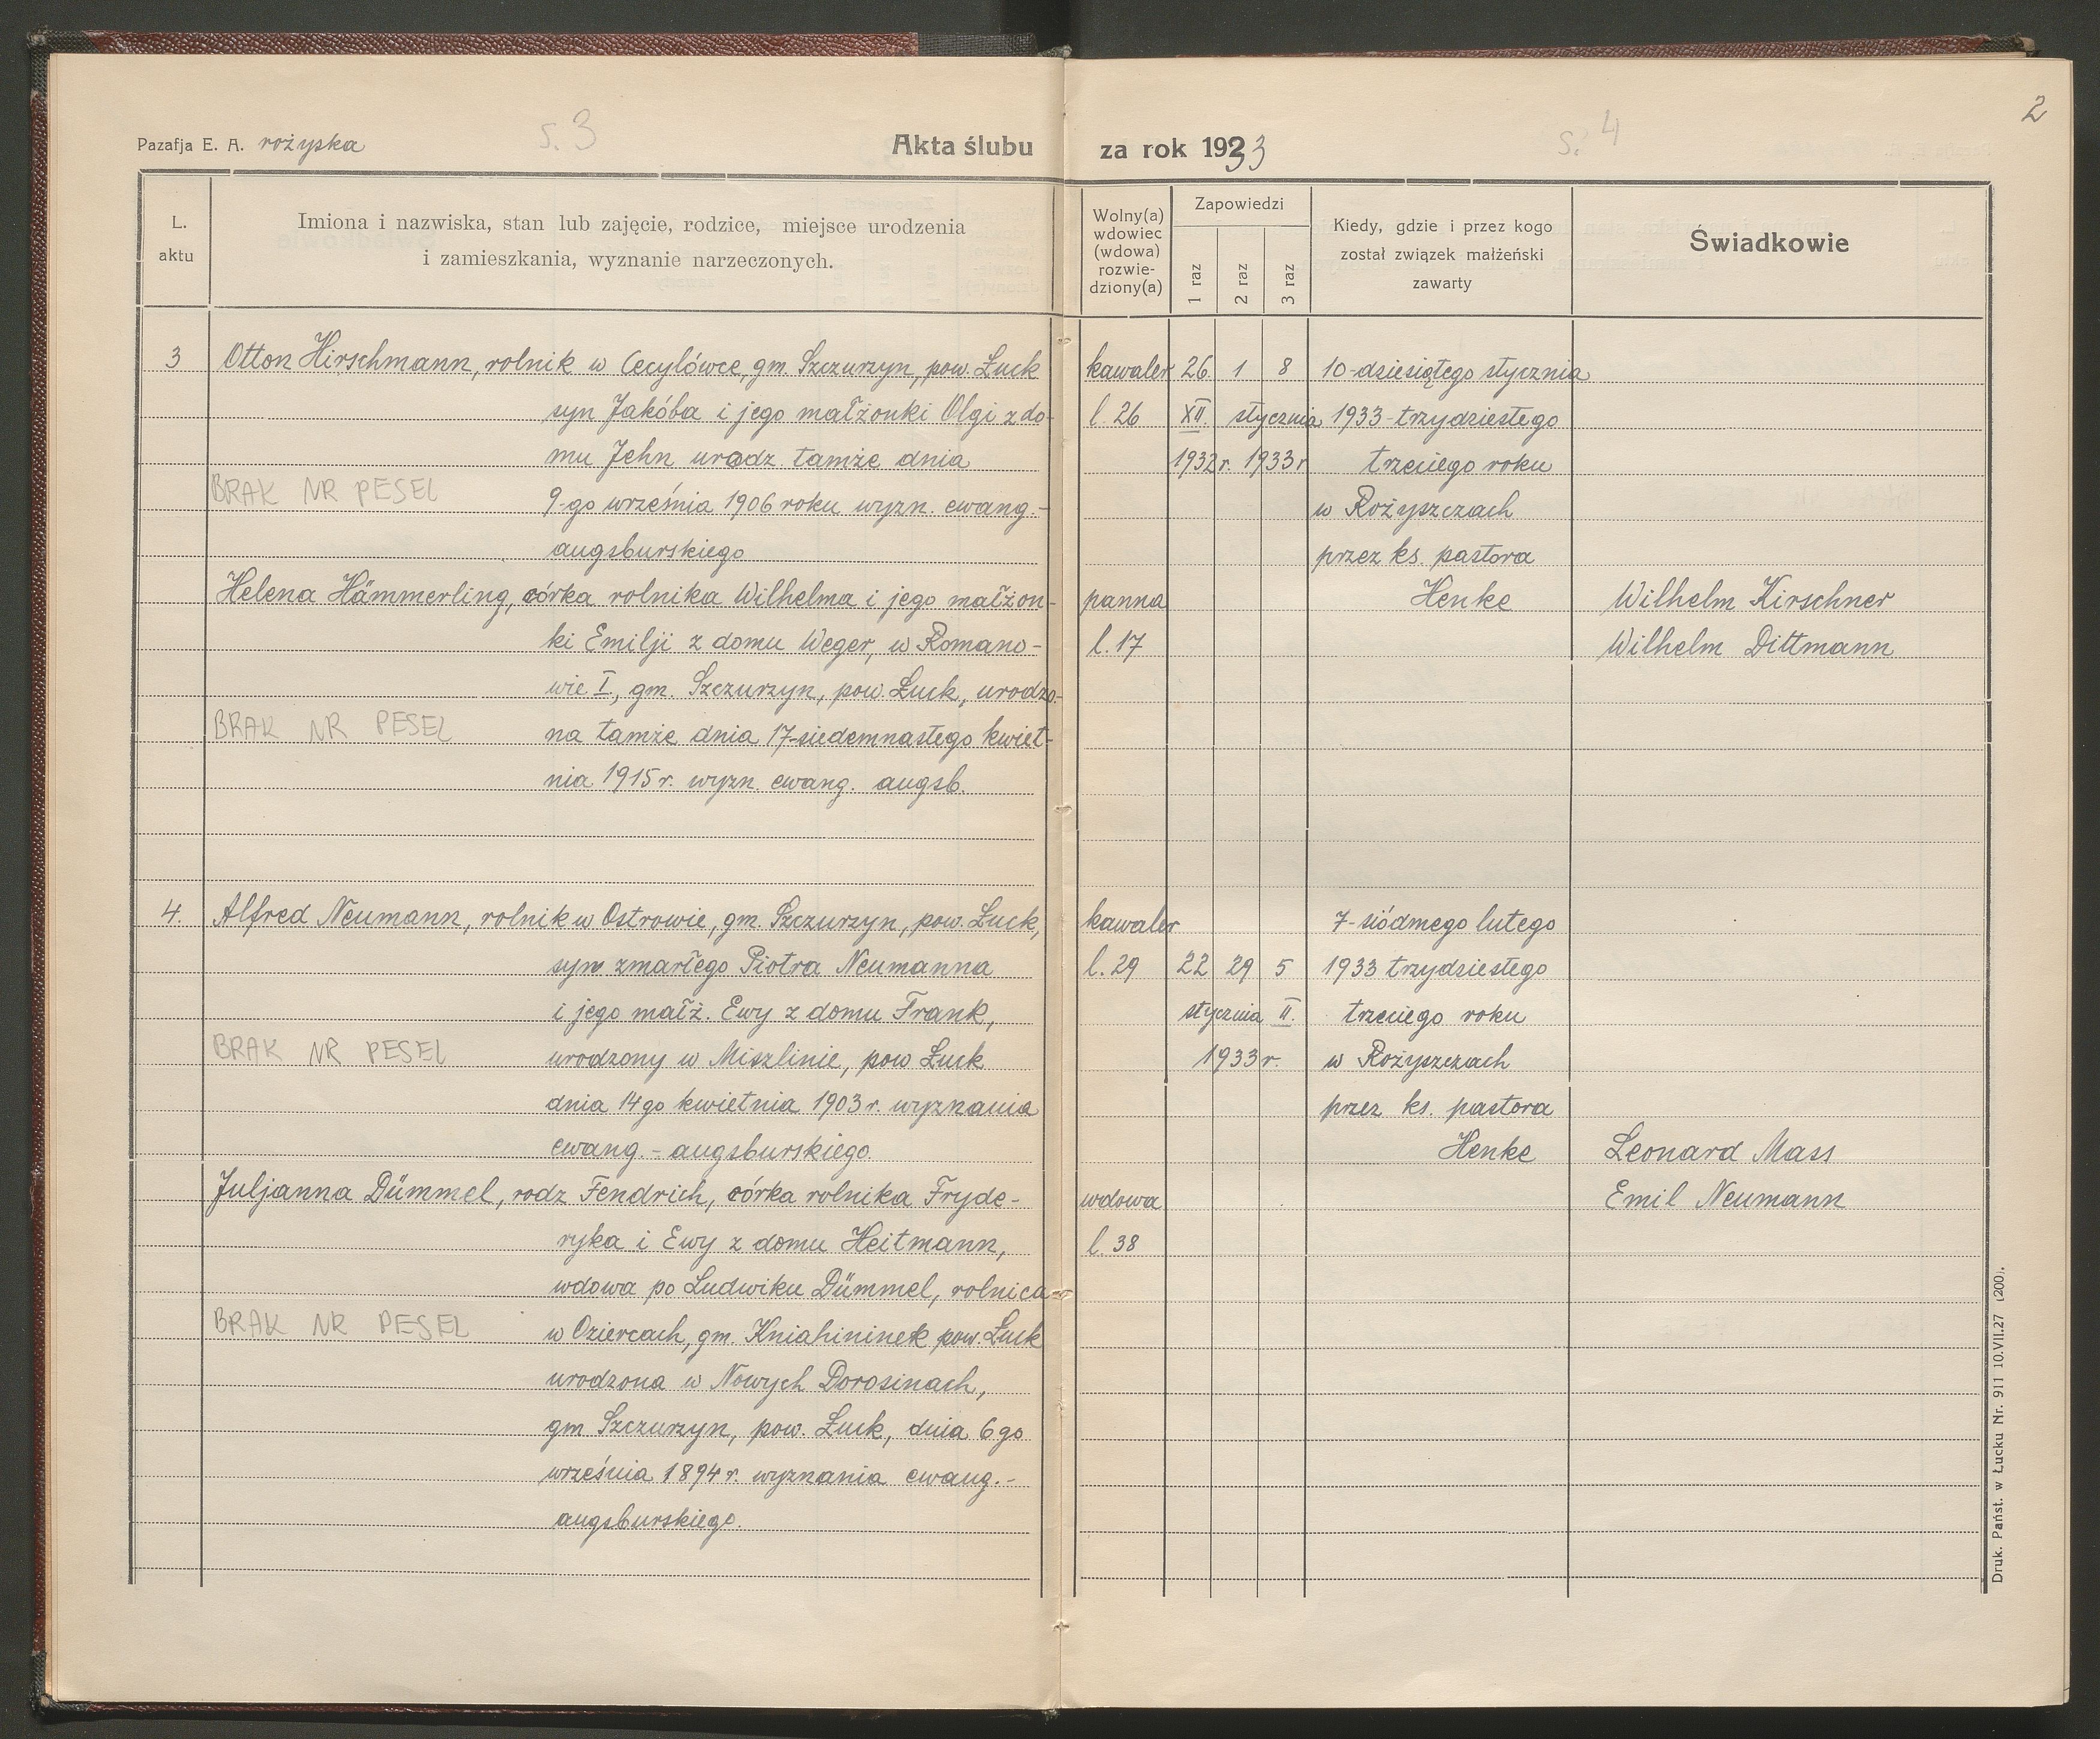 2
Pazafja E. A. rożyska
s. 3
Akta ślubu za rok 1923 3
s. 4
L.
aktu
Imiona i nazwiska, stan lub zajęcie, rodzice, miejsce urodzenia
i zamieszkania, wyznanie narzeczonych.
Wolny(a)
wdowiec
(wdowa)
rozwie-
dziony(a)
Zapowiedzi
1 raz
2 raz
3 raz
Kiedy, gdzie i przez kogo
został związek małżeński
zawarty
Świadkowie
3 Otton Hirschmann, rolnik w Cecylówce, gm. Szczurzyn, pow. Łuck
syn Jakóba i jego małżonki Olgi z do-
mu Jehn urodz. tamże dnia
BRAK NR PESEL
9-go września 1906 roku wyzn. ewang.-
augsburskiego
Helena Hämmerling, córka rolnika Wilhelma i jego małżon-
ki Emilji z domu Weger, w Romano-
wie I, gm. Szczurzyn, pow. Łuck, urodzo-
BRAK NR PESEL
na tamże dnia 17-siedemnastego kwiet-
nia 1915 r. wyzn. ewang. augsb.
kawaler 26. 1 8 10-dziesiątego stycznia
l. 26 XII. stycznia 1933-trzydziestego
1932 r. 1933 r trzeciego roku
w Rożyszczach
przez ks. pastora
panna Henke Wilhelm Kirschner
l. 17 Wilhelm Dittmann
4. Alfred Neumann, rolnik w Ostrowie, gm. Szczurzyn, pow. Łuck,
syn zmarłego Piotra Neumanna
i jego małż. Ewy z domu Frank,
BRAK NR PESEL
urodzony w Miszlinie, pow Łuck
dnia 14 go kwietnia 1903 r. wyznania
ewang.-augsburskiego.
Juljanna Dümmel, rodz Fendrich, córka rolnika Fryde-
ryka i Ewy z domu Heitmann,
wdowa po Ludwiku Dümmel, rolnica-
BRAK NR PESEL
w Oziercach, gm. Kniahininek pow. Łuck
urodzona w Nowych Dorosinach,
gm Szczurzyn, pow. Łuck, dnia 6 go
września 1894 r. wyznania ewang.-
augsburskiego.
kawaler 7-siódmego lutego
l. 29 22 29 5 1933 trzydziestego
stycznia II. trzeciego roku
1933 r. w Rożyszczach
przez ks. pastora
Henke Leonard Mass
wdowa Emil Neumann
l. 38
Druk. Państ. w Łucku Nr. 911 10.VII.27 (200).